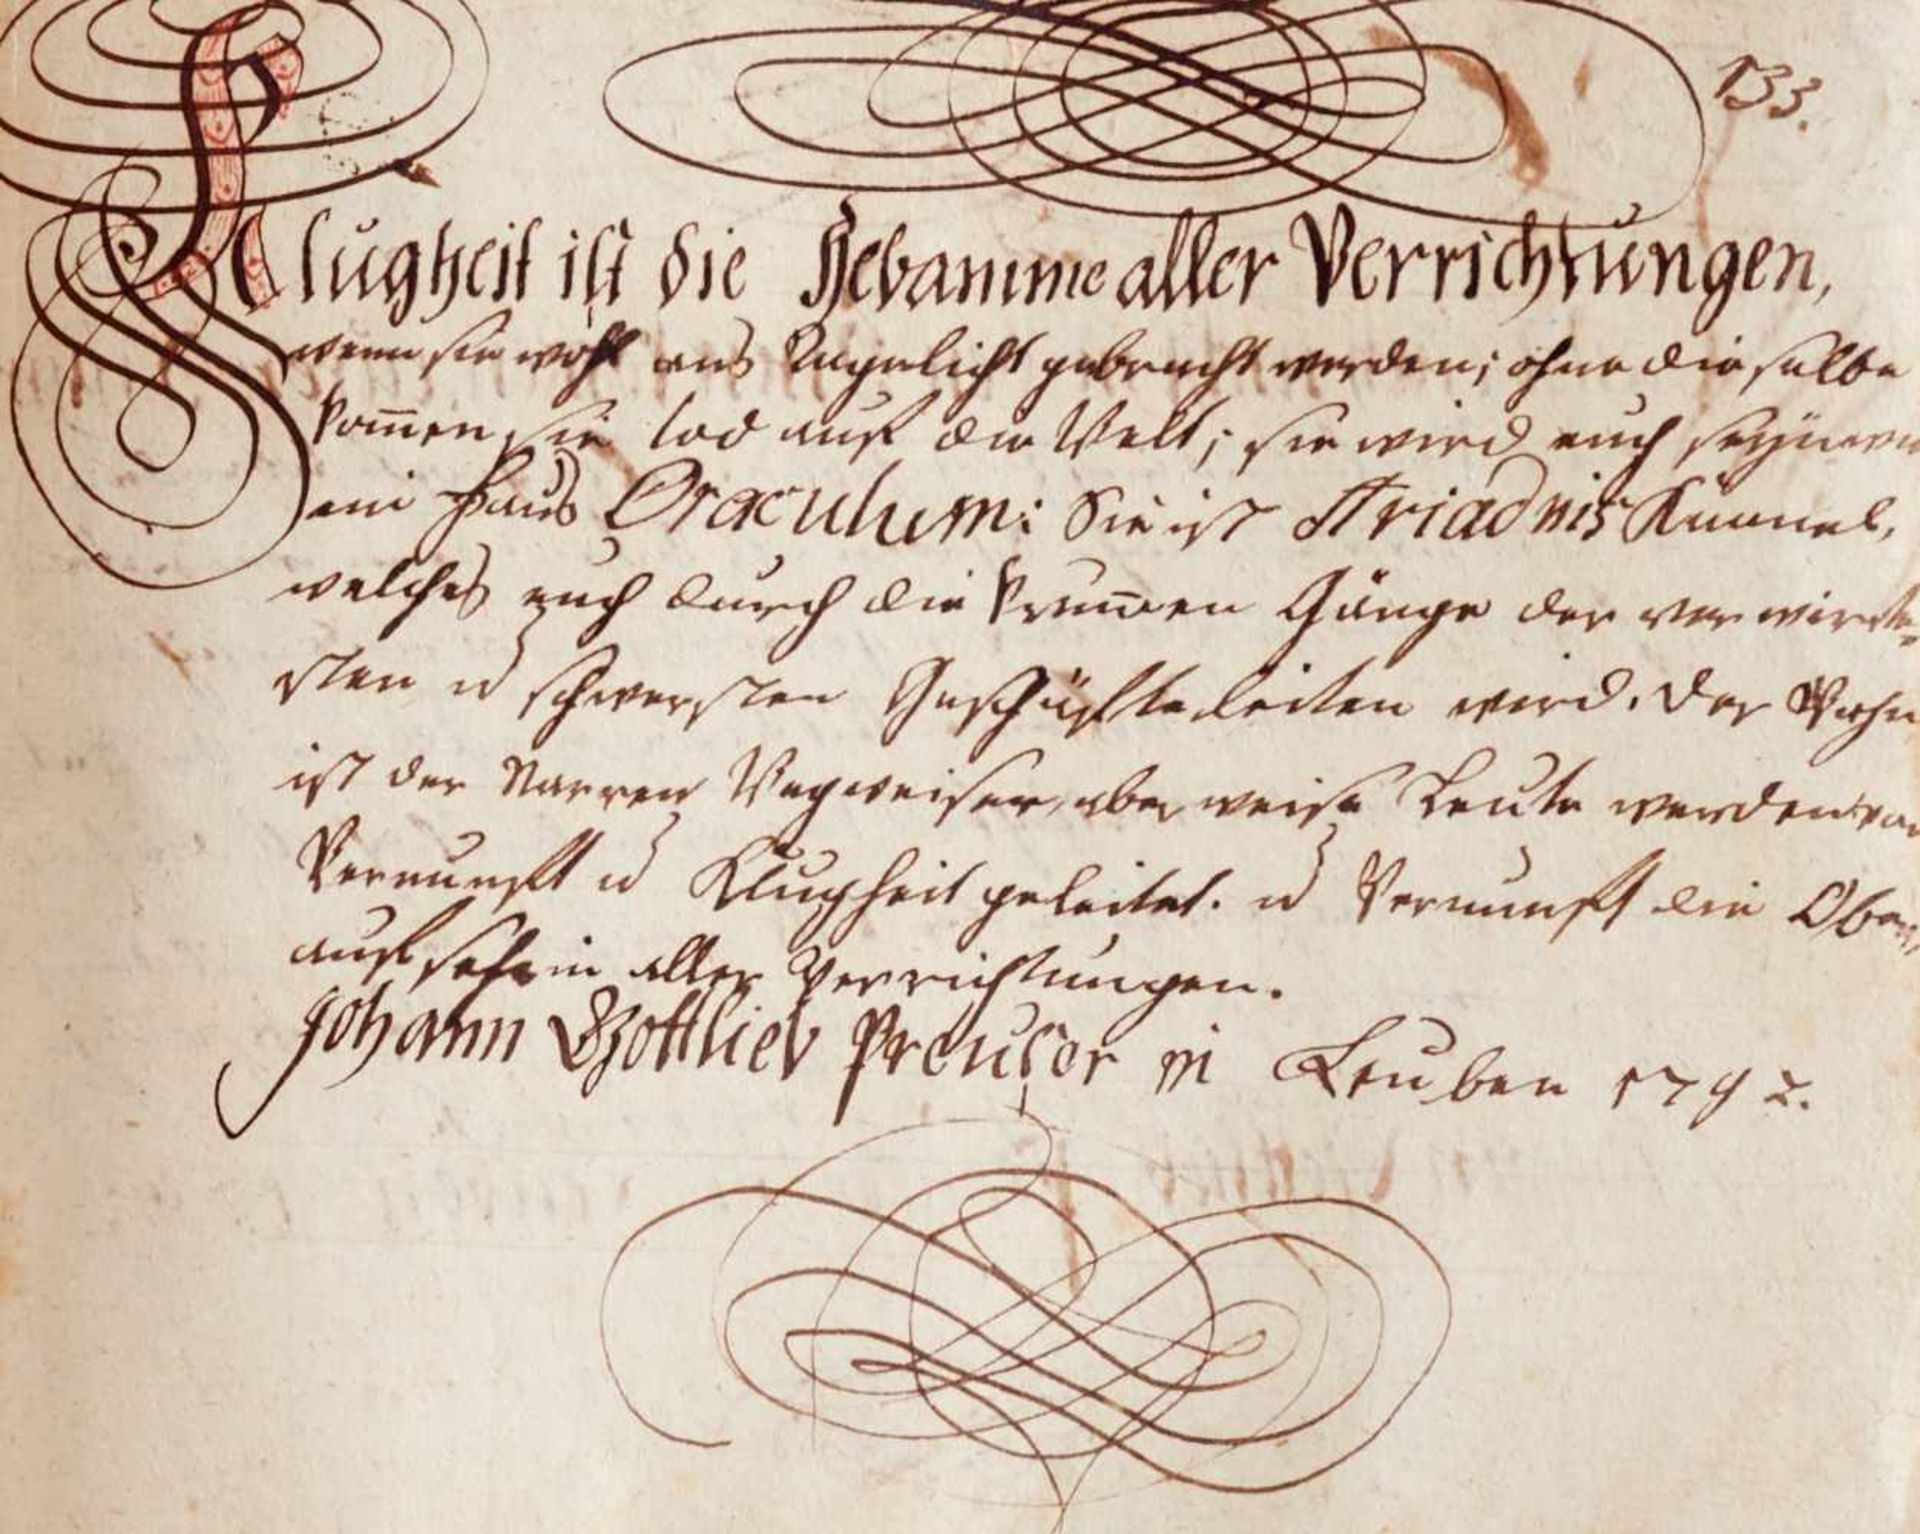 133.
Klugheit ist die Hebamme aller Verrichtungen,
wenn sie wohl ans Tagelicht gebracht werden; ohne dieselbe
kom̄en sie tod auf die Welt; sie wird euch seÿn wie
ein Haus Oraculum: Sie ist Ariadnis Knaul,
welches euch durch die krum̄en Gänge der verwirrte-
sten u schwersten Geschäffte leiten wird. Der Wahn
ist der Narren Wegweiser, aber weise Leute werden von
Vernunfft u Klugheit geleitet. u Vernunfft die Ober
aufseherin aller Verrichtungen.
Johann Gottlieb Preuser in Leuben 1792.